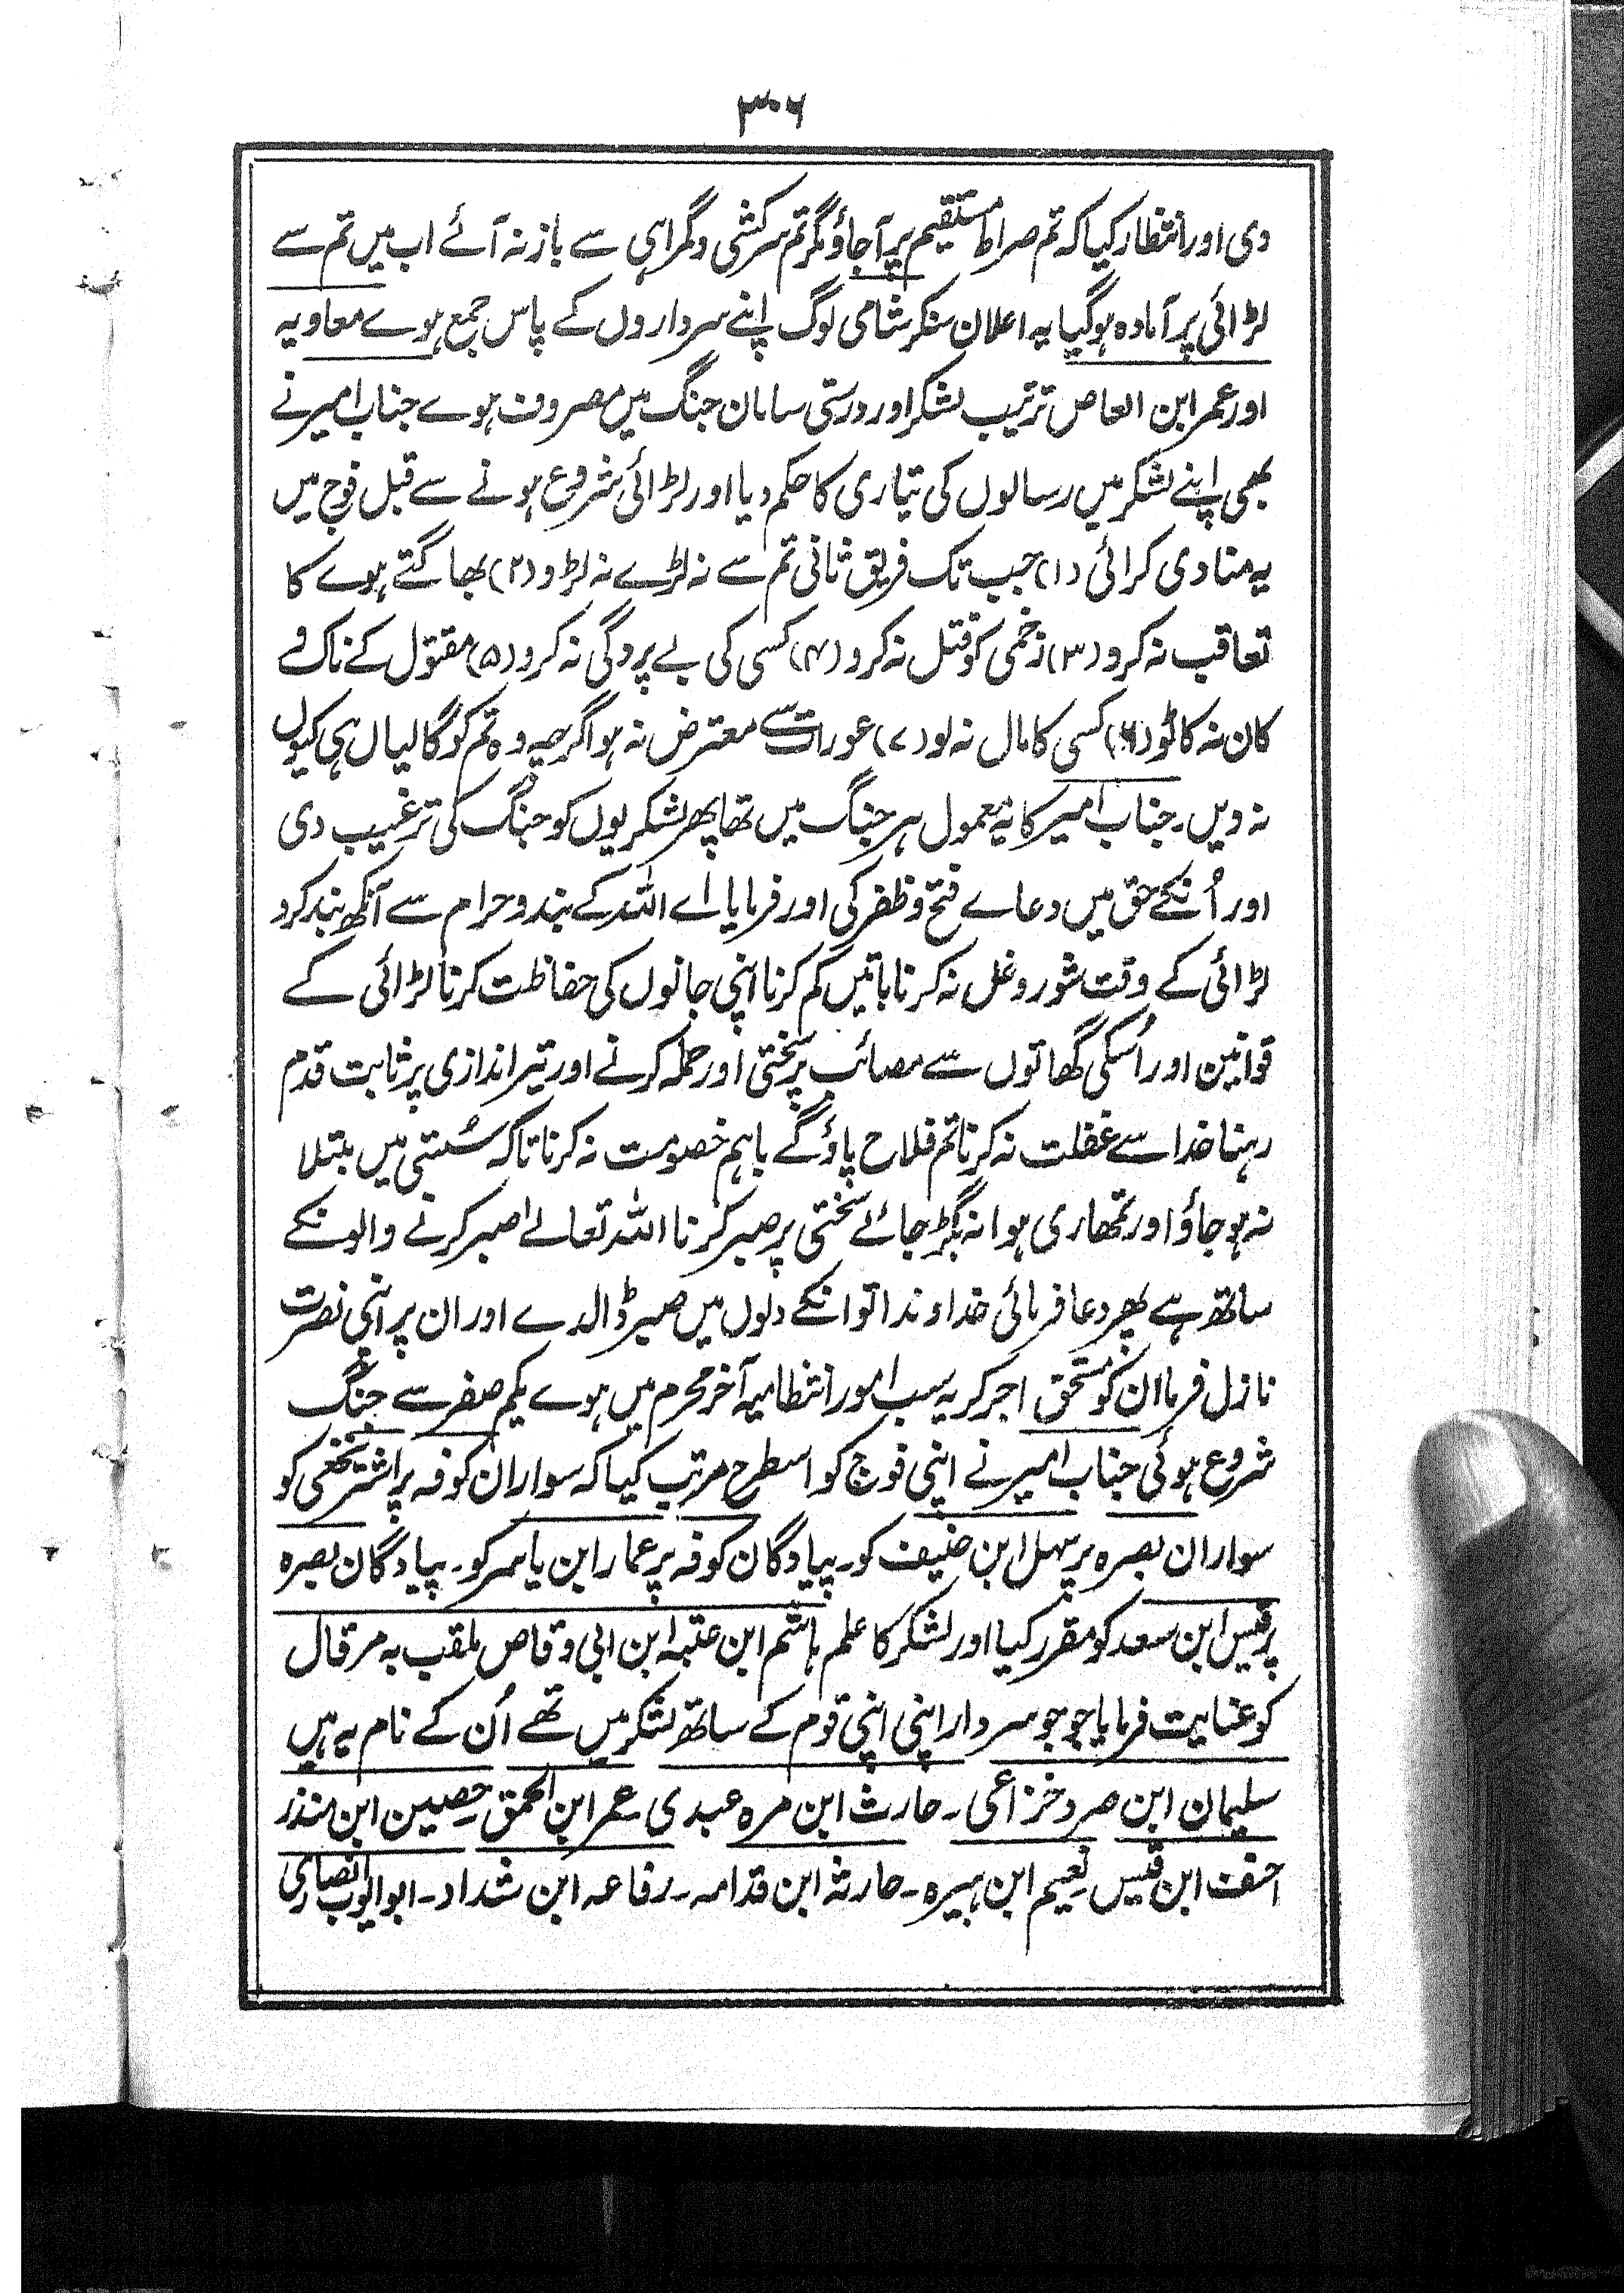 ۳۰۶
دی اور انتظار کیا کہ تم صراط مستقیم پر آجاؤ مگر تم سرکشی وگمراہی سے باز نہ آئے اب میں تم سے
لڑائی پر آمادہ ہوگیا یہ اعلان سنکر شامی لوگ اپنے سرداروں کے پاس جمع ہوے معاویہ
اور عمر ابن العاص ترتیب لشکر اور درستی سامان جنگ میں مصروف ہوے جناب امیر نے
بھی اپنے لشکر میں رسالوں کی تیاری کا حکم دیا اور لڑائی شروع ہونے سے قبل فوج میں
یہ منادی کرائی (۱) جب تک فریق ثانی تم سے نہ لڑے نہ لڑو (۲) بھاگتے ہوے کا
تعاقب نہ کرو (۳) زخمی کو قتل نہ کرو (۴) کسی کی بے پردگی نہ کرو (۵) مقتول کے ناک و
کان نہ کاٹو (۶) کسی کا مال نہ لو (۷) عورات سے معترض نہ ہو اگرچہ وہ تم کو گالیاں ہی کیوں
نہ دیں۔ جناب امیر کا یہ معمول ہر جنگ میں تھا پھر لشکریوں کو جنگ کی ترغیب دی
اور اُنکے حق میں دعاے فتح و ظفر کی اور فرمایا اے اللہ کے بندو حرام سے آنکھ بند کرو
لڑائی کے وقت شور و غل نہ کرنا باتیں کم کرنا اپنی جانوں کی حفاظت کرنا لڑائی کے
قوانین اور اُسکی گھاتوں سے مصائب پر سختی اور حملہ کرنے اور تیر اندازی پر ثابت قدم
رہنا خدا سے غفلت نہ کرنا تم فلاح پاؤگے باہم خصومت نہ کرنا تاکہ سُستی میں مبتلا
نہ ہوجاؤ اور تمھاری ہوا نہ بگڑ جائے سختی پر صبر کرنا اللہ تعالے صبر کرنے والونکے
ساتھ ہے پھر دعا فرمائی خداوندا تو انکے دلوں میں صبر ڈالدے اور ان پر اپنی نصرت
نازل فرما ان کو مستحق اجر کر یہ سب امور انتظامیہ آخر محرم میں ہوے یکم صفر سے جنگ
شروع ہوئی جناب امیر نے اپنی فوج کو اسطرح مرتب کیا کہ سواران کوفہ پر اشتر نخعی کو
سواران بصرہ پر سہل ابن حنیف کو۔ پیادگان کوفہ پر عمار ابن یاسر کو۔ پیادگان بصرہ
پر قیس ابن سعد کو مقرر کیا اور لشکر کا علم ہاشم ابن عتبہ ابن ابی وقاص ملقب بہ مرقال
کو عنایت فرمایا جو جو سردار اپنی اپنی قوم کے ساتھ لشکر میں تھے اُن کے نام یہ ہیں
سلیمان ابن صرد خزاعی۔ حارث ابن مرہ عبدی۔ عمر ابن الحمق۔ حصین ابن منذر
احنف ابن قیس نعیم ابن ہبیرہ۔ حارثہ ابن قدامہ۔ رفاعہ ابن شداد۔ ابوایوب انصاری